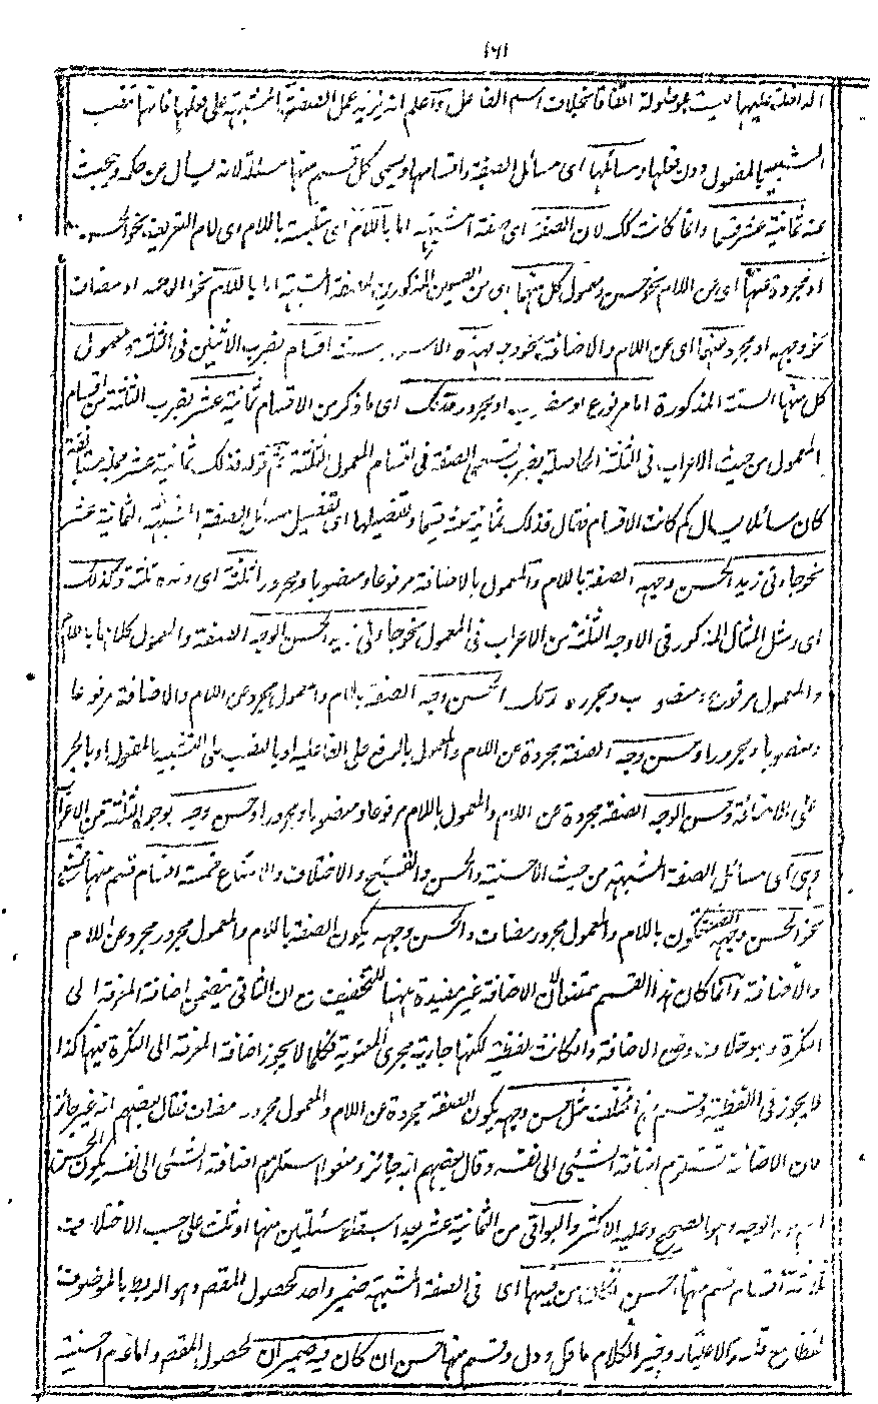 ١٦١
الداخلة عليها ليست بموصولة اتفاقا بخلاف اسم الفاعل واعلم انه يزيد عمل الصفة المشبهة على فعلها فانها تنصب
الشبيه بالمفعول دون فعلها ومسائلها اى مسائل الصفة واقسامها ويسمى كل قسم منها مسئلة لانه يسال عن حكمه ويبحث
عنه ثمانية عشر قسما وانما كانت كك لان الصفة اى صفة المشبهة اما باللام اى متلبسة باللام اى لام التعريف نحو الحسن
او مجردة عنها اى عن اللام نحو حسن ومعمول كل منهما اى من القسمين المذكورين للصفة المشبهة اما باللام نحو الوجه او مضاف
نحو وجهه او مجرد عنهما اى عن اللام والاضافة نحو وجه فهذه ستة اقسام بضرب الاثنين فى الثلثة ومعمول
كل منها الستة المذكورة اما مرفوع او منصوب او مجرور فتلك اى ما ذكر من الاقسام ثمانية عشر بضرب الثلثة من اقسام
المعمول من حيث الاعراب فى الثلثة الحاصلة بضرب قسمى الصفة فى اقسام المعمول الثلثة ثم قوله فذلك ثمانية عشر جملة مستانفة
كان سائلا يسال كم كانت الاقسام فقال فذلك ثمانية عشر قسما وتفصيلها اى تفصيل مسائل الصفة المشبهة الثمانية عشر
نحو جاءنى زيد الحسن وجهه الصفة باللام والمعمول بالاضافة مرفوعا ومنصوبا ومجرورا ثلثة اى وجوه ثلثة وكذلك
اى ومثل المثال المذكور فى الاوجه الثلثة من الاعراب فى المعمول نحو جاءنى زيد الحسن الوجه الصفة والمعمول كلاهما باللام
والمعمول مرفوع ومنصوب ومجرور وكذلك الحسن وجه الصفة باللام والمعمول مجرد عن اللام والاضافة مرفوعا
ومنصوبا ومجرورا وحسن وجهه الصفة مجردة عن اللام والمعمول بالرفع على الفاعلية او بالنصب على التشبيه بالمفعول او بالجر
على الاضافة وحسن الوجه الصفة مجردة عن اللام والمعمول باللام مرفوعا ومنصوبا ومجرورا وحسن وجه بوجوه الثلثة من الاعراب
وهى اى مسائل الصفة المشبهة من حيث الاحسنية والحسن والقبيح والاختلاف والامتناع خمسة اقسام قسم منها ممتنع
نحو الحسن وجهه الصفة يكون باللام والمعمول مجرور مضاف والحسن وجه يكون الصفة باللام والمعمول مجرور مجرد عن اللام
والاضافة وانما كان هذا القسم ممتنعا لان الاضافة غير مفيدة فيها للتخفيف مع ان الثانى يتضمن اضافة المعرفة الى
النكرة وهو خلاف وضع الاضافة وان كانت لفظية لكنها جارية مجرى المعنوية فكما لا يجوز اضافة المعرفة الى النكرة فيها كذا
لا يجوز فى اللفظية وقسم منها مختلف مثل حسن وجهه يكون الصفة مجردة عن اللام والمعمول مجرور مضاف فقال بعضهم انه غير جائز
لان الاضافة تستلزم اضافة الشيئ الى نفسه وقال بعضهم انه جائز ومنعوا استلزام اضافة الشيئ الى نفسه يكون الحسن
اعم من الوجه وهو الصحيح وعليه الاكثر والبواقى من الثمانية عشر بعد اسقاط مسئلتين منها او ثلث على حسب الاختلاف
ثلاثة اقسام قسم منها احسن ان كان من فيها اى فى الصفة المشبهة ضمير واحد لحصول المقصود وهو الربط بالموصوف
لفظا مع قلة الاعتبار وخير الكلام ما قل ودل وقسم منها حسن ان كان فيه ضميران لحصول المقصود واما عدم احسنية